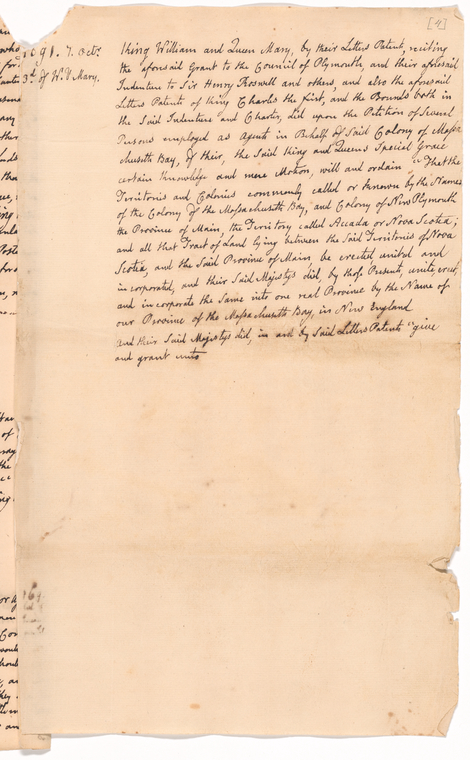 [4]
1691. 7. Octr.
3d. of W. & Mary.
King William and Queen Mary, by their Letters Patent, reciting
the aforesaid Grant to the Council of Plymouth, and their aforesaid
Indenture to Sir Henry Roswell and others, and also the aforesaid
Letters Patents of King Charles the first, and the Bounds both in
the Said Indenture and Charter, did upon the Petition of Several
Persons employed as Agents in Behalf of Said Colony of Massa
chusetts Bay, of their, the Said King and Queens Special Grace
certain knowledge and mere Motion, will and ordain "That the
Territories and Colonies commonly called or known by the Names
of the Colony of the Massachusetts Bay, and Colony of New Plymouth
the Province of Main, the Territory called Accada or Nova Scotia;
and all that Tract of Land lying between the Said Territories of Nova
Scotia, and the Said Province of Main be erected united and
incorporated, and their Said Majestys did, by those Presents, unite, erect,
and incorporate the Same into one real Province by the Name of
our Province of the Massachusetts Bay, in New England
and their Said Majestys did, in and by Said Letters Patents "give
and grant unto